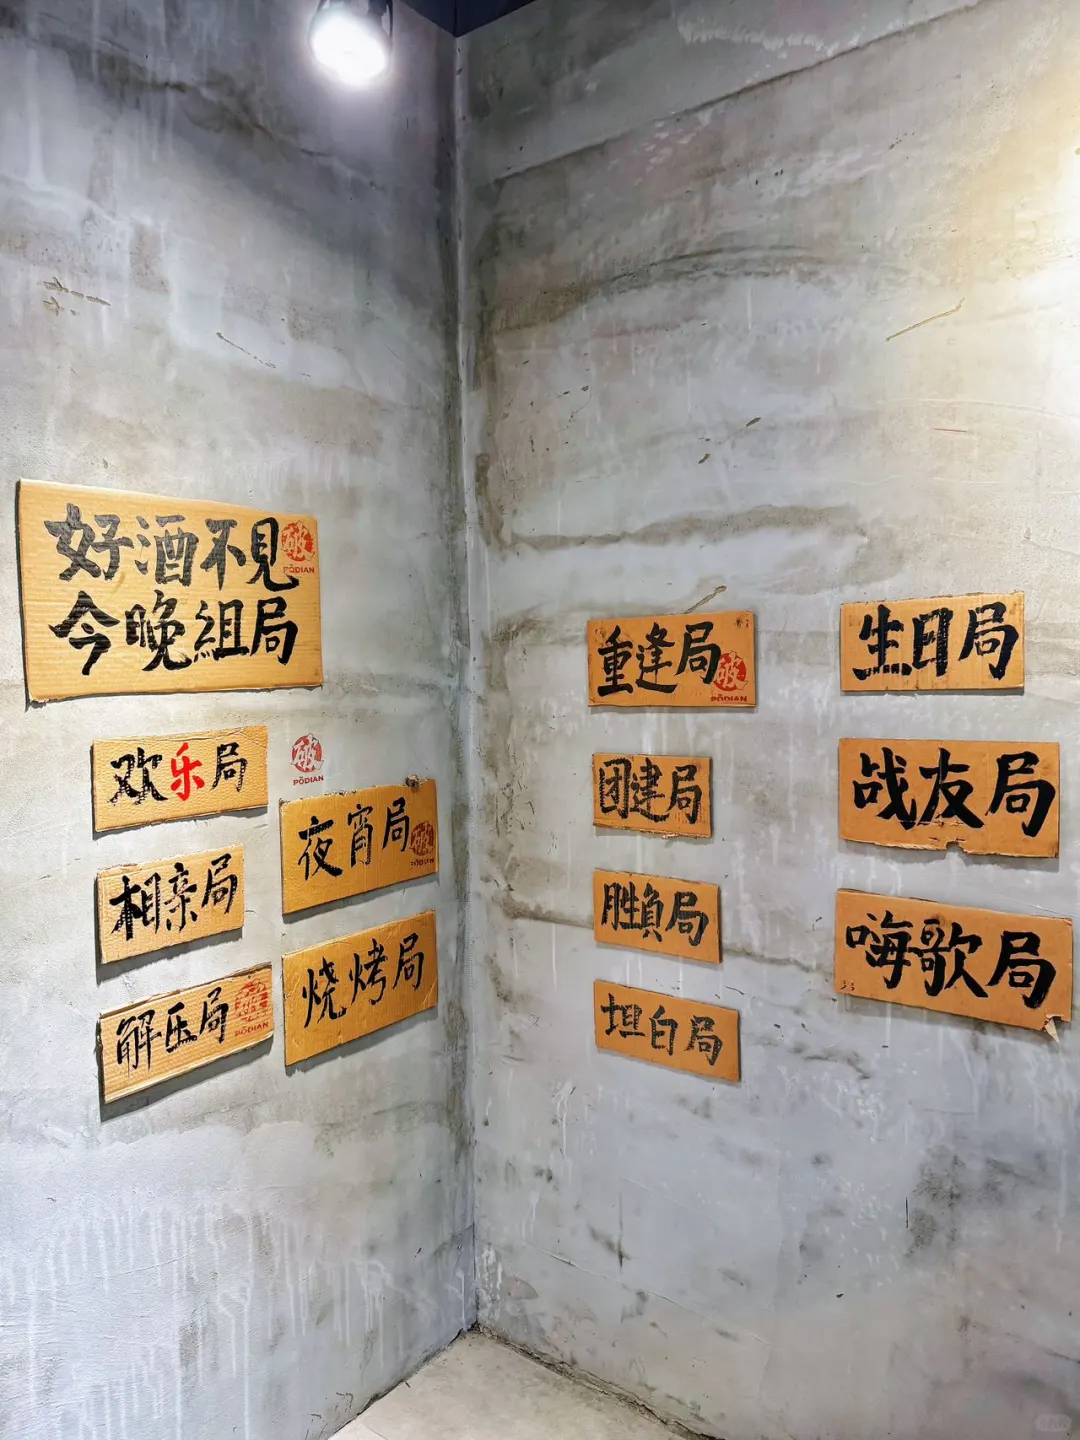 好酒不見
今晚組局
破
PŌDIAN
欢乐局
破
PŌDIAN
相亲局
夜宵局
破
PŌDIAN
解压局
PŌDIAN
烧烤局
重逢局
破
PŌDIAN
生日局
团建局
战友局
胜負局
嗨歌局
坦白局